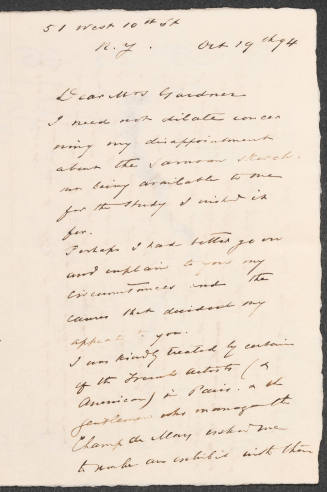 51 West 10th St
N.Y. Oct 19th 94
Dear Mrs Gardner
I need not dilate concer
ning my disappointment
about the Samoan sketch.
not being available to me
for the study I wished it
for.
Perhaps I had better go on
and explain to you my
circumstances and the
causes that decided my
appeal to you.
I was kindly treated by certain
of the French artists (&
American) in Paris. & the
gentlemen who manage the
Champ de Mars asked me
to make an exhibit with them